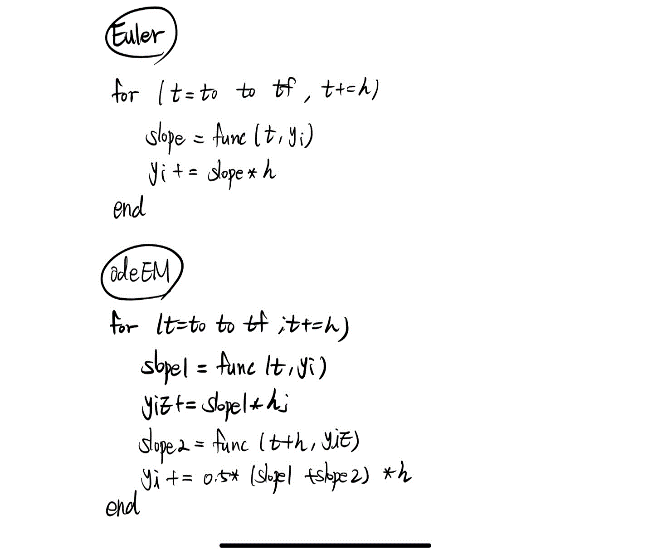 Euler
for (t=to to tf, t+=h)
slope = func(t, yi)
yi += slope*h
end
odeEM
for (t=to to tf ;t+=h)
slope1 = func(t, yi)
yiE += slope1*h;
slope2 = func (t+h, yiE)
yi += 0.5* (slope1 +slope2) *h
end